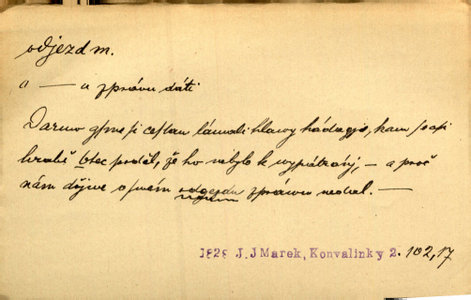 odjezd m.
o — u zprávu dáti
Darmo gsme si cestau lámali hlawy hádagjce, kam se asi
hrabě Otec poděl, že ho nebylo k wypátránj, — a proč
nám dřjwe o swém odgezdu zpráwu nedal. —
1828 J. J Marek, Konvalinky 2. 102, 17